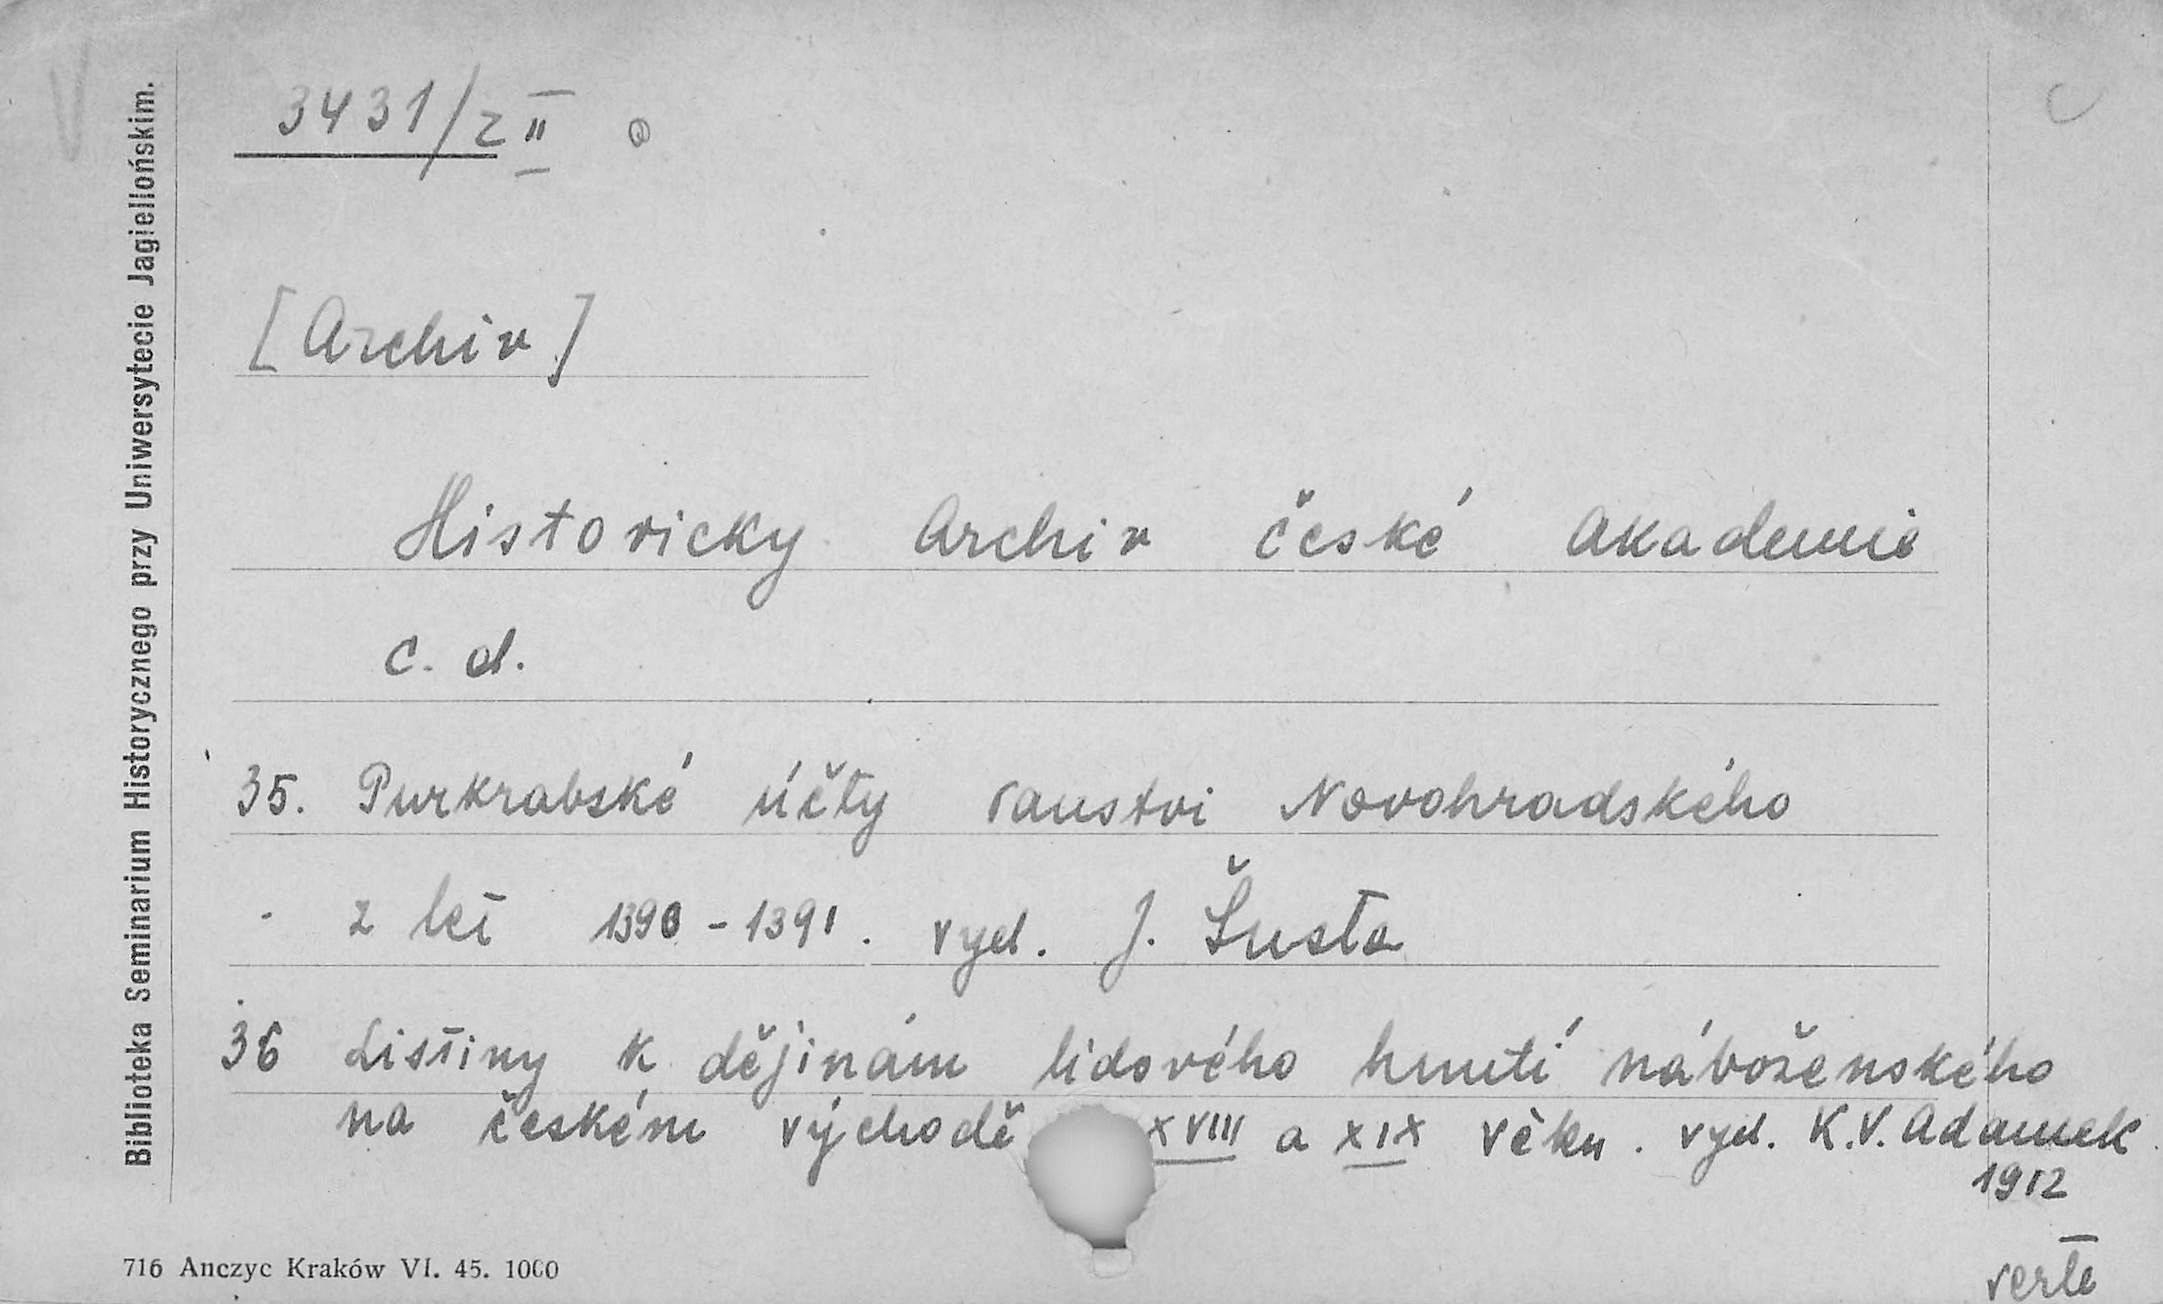 3431/z II
[Archiv]
Historicky Archiv české Akademie
c. d.
35. Purkrabské účty panství Novohradského
z let 1390 - 1391. vyd. J. Šusta
36 Listiny k dějinám lidového hnutí náboženského
na českém východě XVIII a XIX věku. vyd. K.V. Adamek
1912
verte
Biblioteka Seminarium Historycznego przy Uniwersytecie Jagiellońskim.
716 Anczyc Kraków VI. 45. 1000